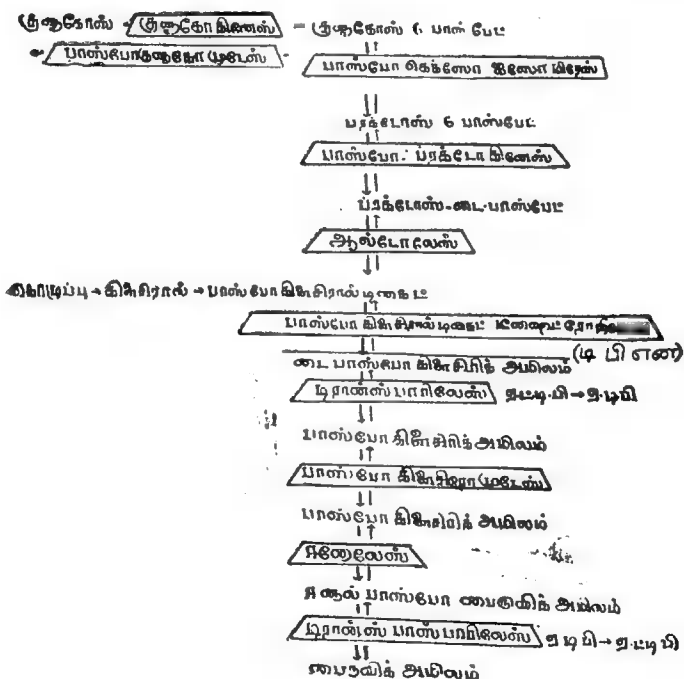 குளுகோஸ் - குளுகோகினேஸ் - குளுகோஸ் 6 பாஸ்பேட்
பாஸ்போகுளுகோமுடேஸ்
பாஸ்போ கெக்ஸோ ஐஸோமிரேஸ்
பரக்டோஸ் 6 பாஸ்பேட்
பாஸ்போ ப்ரக்டோ கினேஸ்
ப்ரக்டோஸ்-டை-பாஸ்பேட்
ஆல்டோலேஸ்
கொழுப்பு → கிளிசிரால் → பாஸ்போ கிளிசிரால்டிகைட்
பாஸ்போ கிளிசிரால்டிகைட்
(டி பி என்)
டை பாஸ்போ கிளிசிரிக் அமிலம்
டிரான்ஸ்பாரிலேஸ் ஏ.ட்டி.பி → ஏ.டி.பி
பாஸ்போ கிளிசிரிக் அமிலம்
பாஸ்போ கிளிசிரோமுடேஸ்
பாஸ்போ கிளிசிரிக் அமிலம்
ஈனோலேஸ்
ஈனால் பாஸ்போ பைருகிக் அமிலம்
டிரான்ஸ் பாஸ்பாரிலேஸ் ஏ டி பி → ஏ.ட்டி பி
பைருவிக் அமிலம்